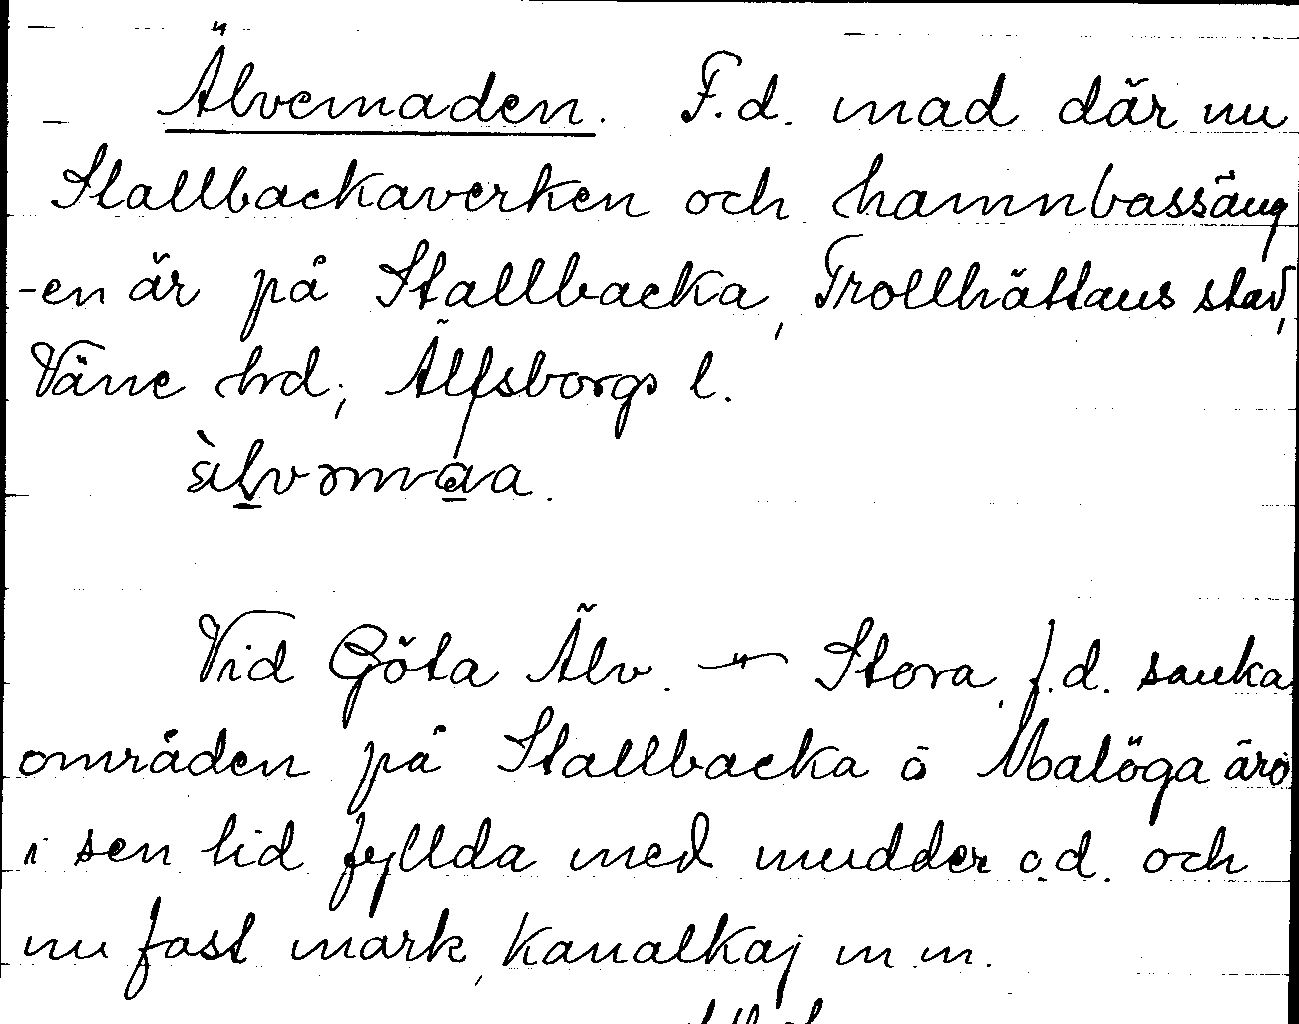 Älvemaden. F.d. mad där nu
Stallbackaverken och hamnbassäng
-en är på Stallbacka, Trollhättans stad,
Väne hrd, Älfsborgs l.
Vid Göta Älv. — " — Stora, f.d. sanka
områden på Stallbacka o Malöga äro
i sen tid fyllda med mudder o.d. och
nu fast mark, kanalkaj m.m.